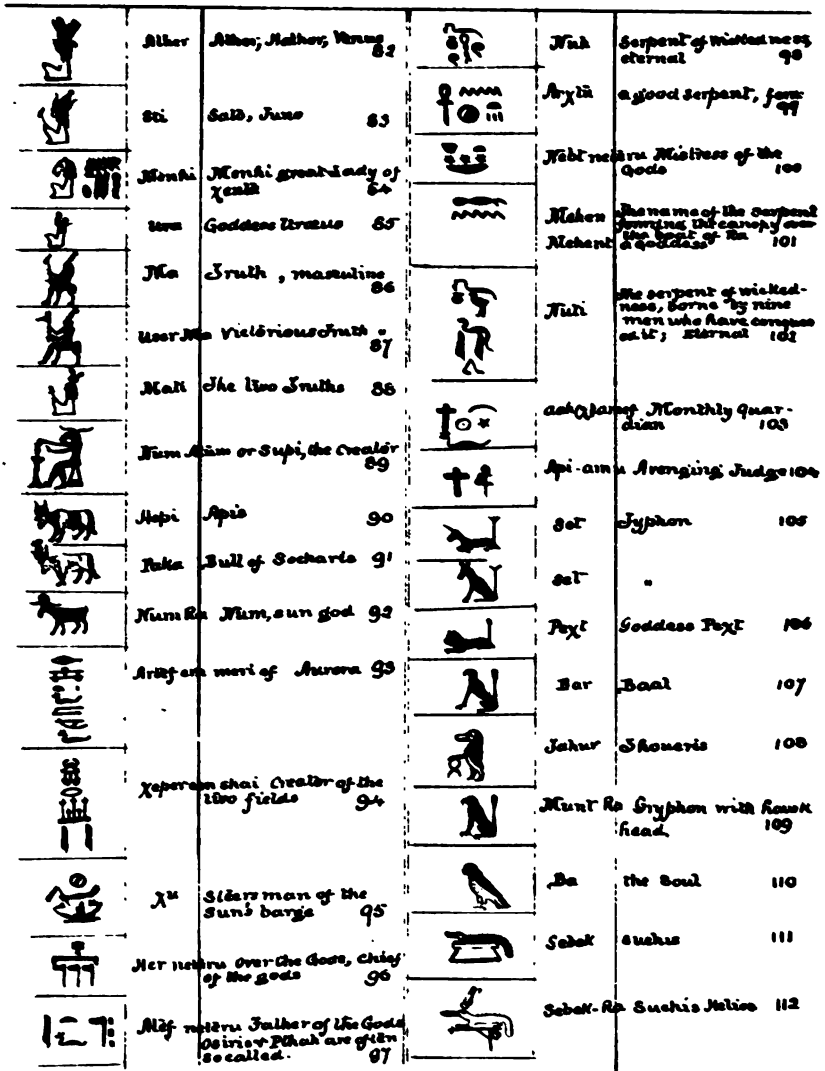 Ather Athor, Hathor, Venus
82
Sti Sate, Juno 83
Menhi Menhi great Lady of
84
Ura Goddess Uraeus 85
Ma Truth, masculine
86
User Ma Victorious Truth "
87
Mati The two Truths 88
Num or Supi, the Creator
89
Hapi Apis 90
Paka Bull of Socharis 91
Num Ra Num, sun god 92
meri of Aurora 93
Xeperemshai Creator of the
two fields 94
Xu Steersman of the
Sun's barge 95
Her neteru Over the Gods, Chief
of the gods 96
Atef neteru Father of the Gods
Osiris & Pthah are often
so called. 97
Nuh Serpent of wickedness,
eternal 98
a good Serpent, form
99
Nebt neteru Mistress of the
Gods 100
Mehen The name of the Serpent
forming the canopy over
the boat of Ra
Mehent a goddess 101
Nuti The serpent of wicked-
ness, borne by nine
men who have conquer
ed it; Eternal 102
Monthly Guar-
dian 103
Api-amu Avenging Judge 104
Set Typhon 105
Set "
Pext Goddess Pext 106
Bar Baal 107
Tahur Thoueris 108
Munt Ra Gryphon with hawk
head 109
Ba the Soul 110
Sebek Suchis 111
Sebek-Ra Suchis Helios 112